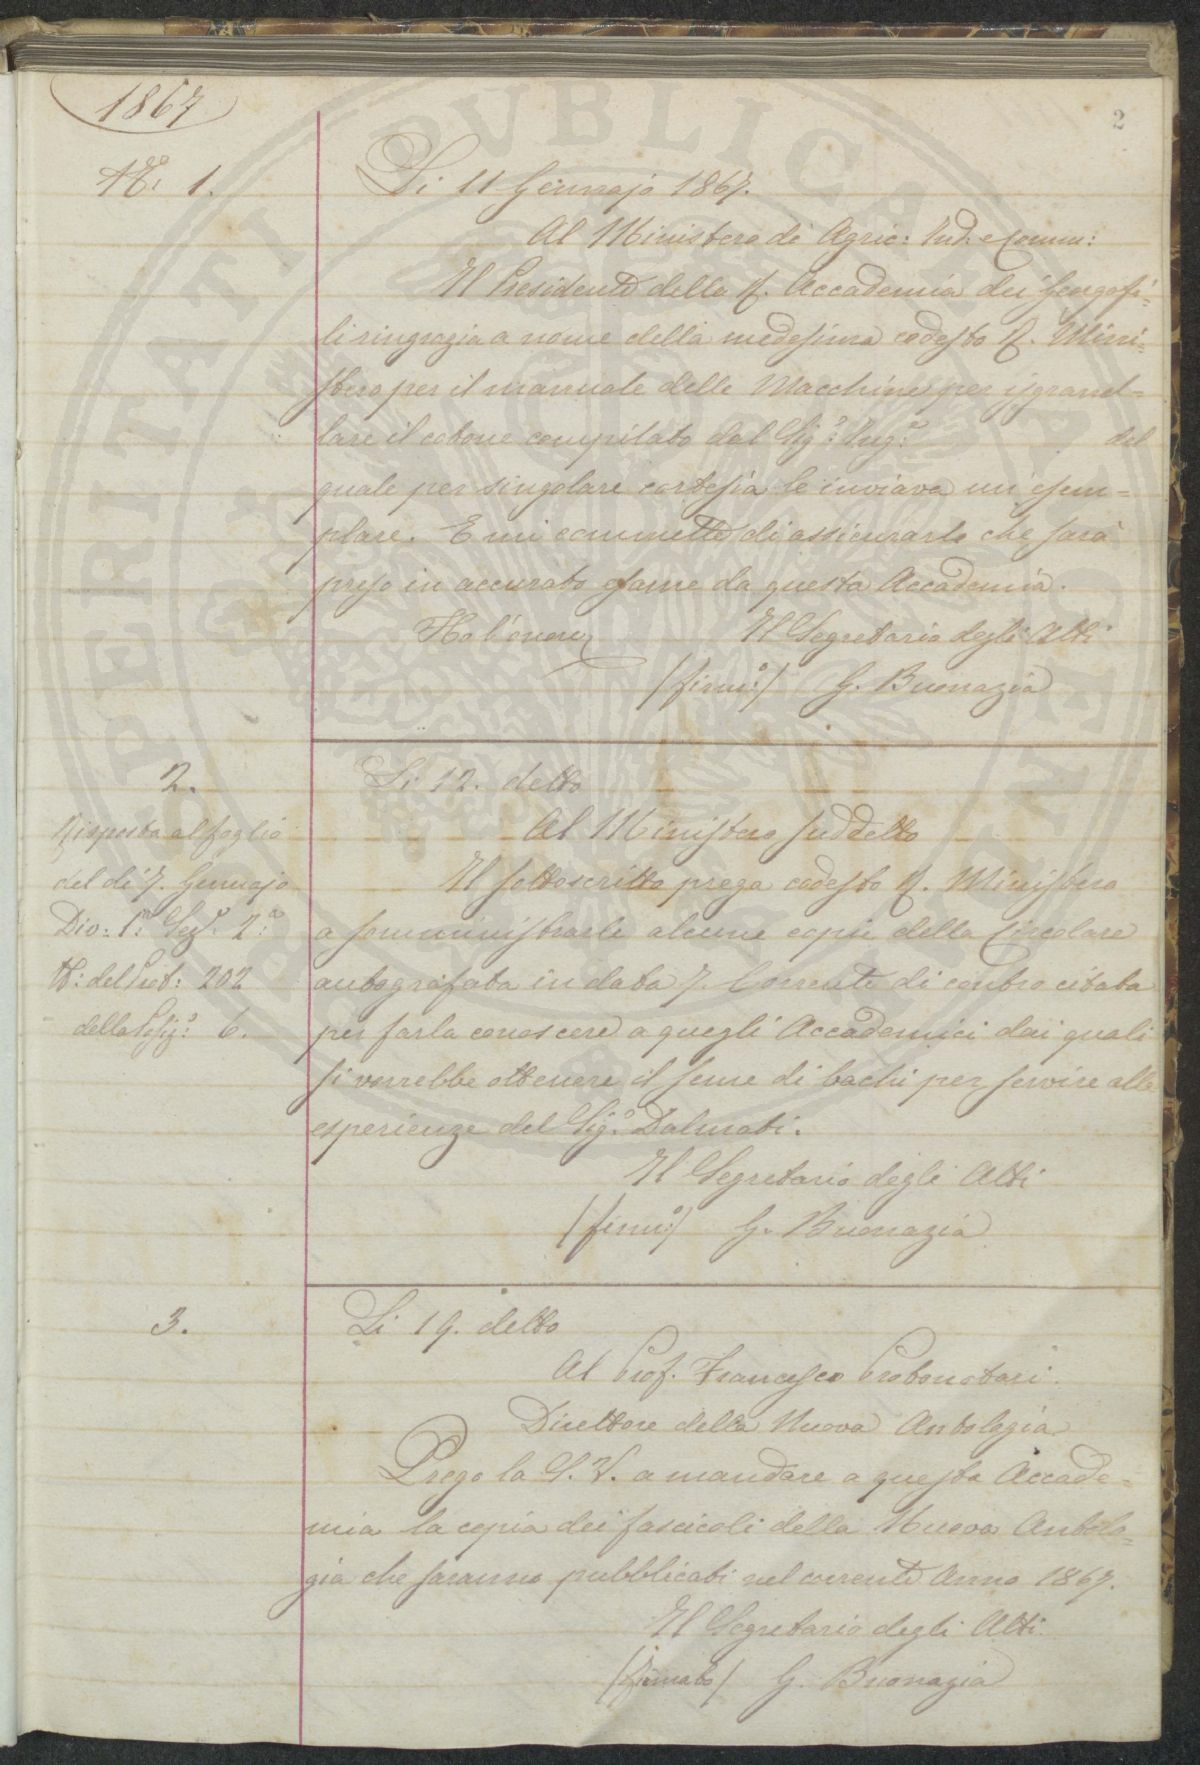 1867
2
N.: 1.
Li 11 Gennajo 1867.
Al Ministero di Agric: Ind: e Comm:
Il Presidente della R. Accademia dei Georgofi=
li ringrazia a nome della medesima codesto R. Mini=
stero per il manuale delle Macchine per isgranel=
lare il cotone compilato dal Sig.r Ing.e del
quale per singolare cortesia le inviava un' esem=
plare. E mi commette di assicurarlo che sarà
preso in accurato esame da questa Accademia.
Ho l'onore Il Segretario degli Atti
/firm:o/ G. Buonazia
2.
Risposta al foglio
del dì 7. Gennajo
Div: 1.a Sez. 2.a
N: del Prot: 202
della Posiz: 6.
Li 12. detto
Al Ministero suddetto
Il sottoscritto prega codesto R. Ministero
a somministrarle alcune copie della Circolare
autografata in data 7. Corrente di contro citata
per farla conoscere a quegli Accademici dai quali
si vorrebbe ottenere il seme di bachi per servire alle
esperienze del Sig.r Dalmati.
Il Segretario degli Atti
/firm:o/ G. Buonazia
3.
Li 19. detto
Al Prof. Francesco Protonotari.
Direttore della Nuova Antologia
Prego la S. V. a mandare a questa Accade=
mia la copia dei fascicoli della Nuova Antolo=
gia che saranno pubblicati nel corrente Anno 1867.
Il Segretario degli Atti
/firmato/ G. Buonazia